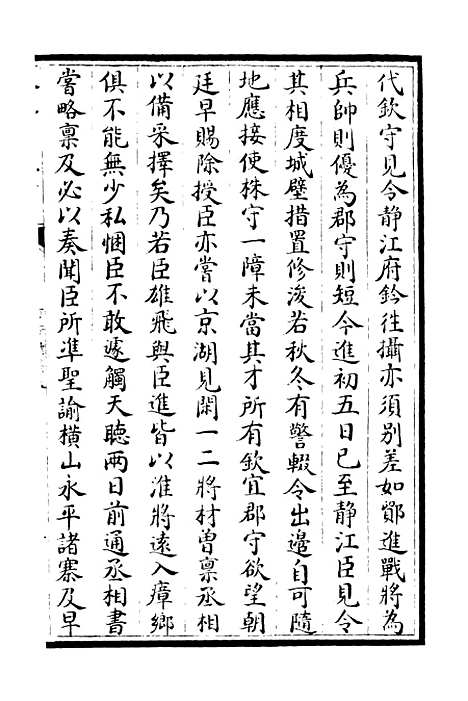 代欽守見令静江府鈐徃攝亦須别差如鄭進戰將為
兵帥則優為郡守則短今進初五日已至静江臣見令
其相度城壁措置修浚若秋冬有警輟令出邉自可隨
地應接使株守一障未當其才所有欽宜郡守欲望朝
廷早賜除授臣亦嘗以京湖見閑一二將材曽禀丞相
以備采擇矣乃若臣雄飛與臣進皆以淮將逺入瘴鄉
俱不能無少私悃臣不敢遽觸天聽兩日前通丞相書
嘗略禀及必以奏聞臣所凖聖諭横山永平諸寨及早